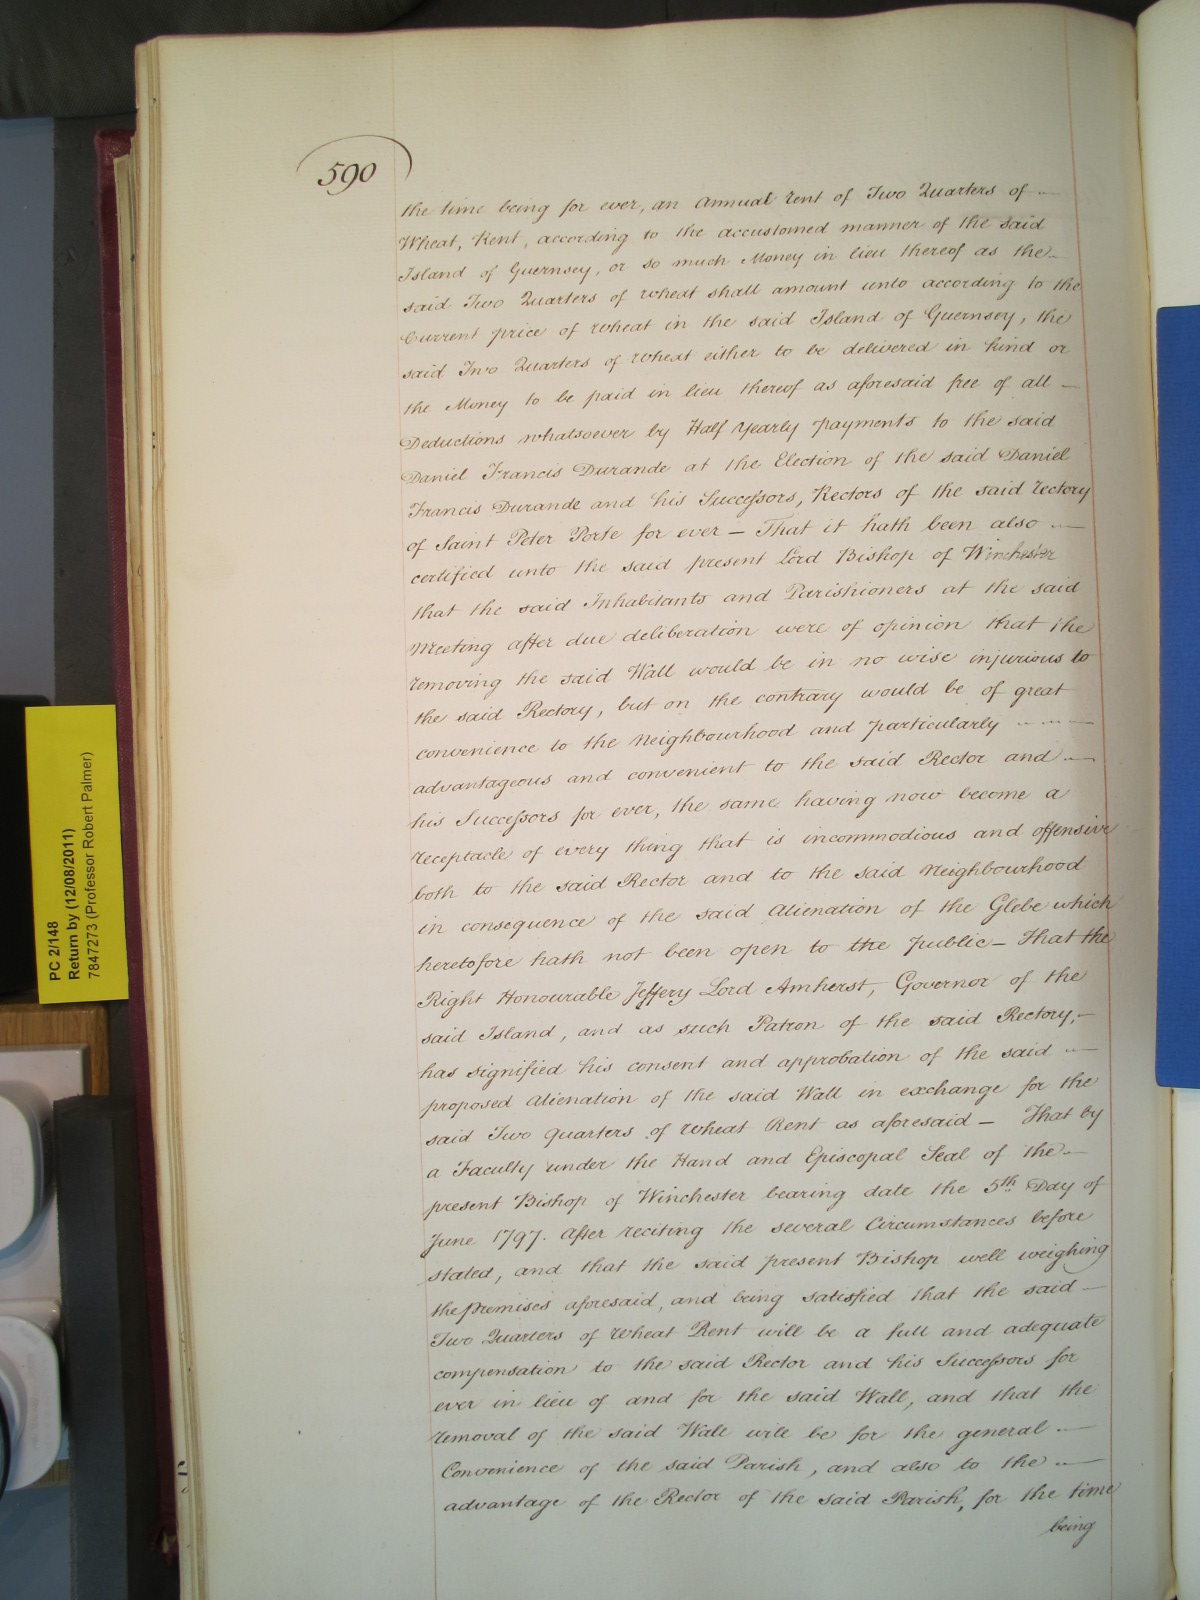 590
the time being for ever, an Annual Rent of Two Quarters of
Wheat, Rent, according to the accustomed manner of the said
Island of Guernsey, or so much Money in lieu thereof as the
said Two Quarters of Wheat shall amount unto according to the
Current price of Wheat in the said Island of Guernsey, the
said Two Quarters of Wheat either to be delivered in kind or
the Money to be paid in lieu thereof as aforesaid free of all
Deductions whatsoever by Half Yearly payments to the said
Daniel Francis Durande at the Election of the said Daniel
Francis Durande and his Successors, Rectors of the said Rectory
of Saint Peter Porte for ever – That it hath been also
certified unto the said present Lord Bishop of Winchester
that the said Inhabitants and Parishioners at the said
Meeting after due deliberation were of opinion that the
removing the said Wall would be in no wise injurious to
the said Rectory, but on the contrary would be of great
convenience to the Neighbourhood and particularly
advantageous and convenient to the said Rector and
his Successors for ever, the same having now become a
receptacle of every thing that is incommodious and offensive
both to the said Rector and to the said Neighbourhood
in consequence of the said Alienation of the Glebe which
heretofore hath not been open to the public – That the
Right Honourable Jeffery Lord Amherst, Governor of the
said Island, and as such Patron of the said Rectory,
has signified his consent and approbation of the said
proposed Alienation of the said Wall in exchange for the
said Two quarters of Wheat Rent as aforesaid – That by
a Faculty under the Hand and Episcopal Seal of the
present Bishop of Winchester bearing date the 5th Day of
June 1797. After reciting the several Circumstances before
stated, and that the said present Bishop well weighing
the premises aforesaid, and being satisfied that the said
Two Quarters of Wheat Rent will be a full and adequate
compensation to the said Rector and his Successors for
ever in lieu of and for the said Wall, and that the
removal of the said Wall will be for the general
Convenience of the said Parish, and also to the
advantage of the Rector of the said Parish, for the time
being
PC 2/148
Return by (12/08/2011)
7847273 (Professor Robert Palmer)